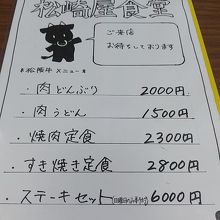 松崎屋食堂
ご来店
お待ちしております
松阪牛 メニュー
・肉どんぶり 2000円
・肉うどん 1500円
・焼肉定食 2300円
・すき焼き定食 2800円
・ステーキセット 6000円